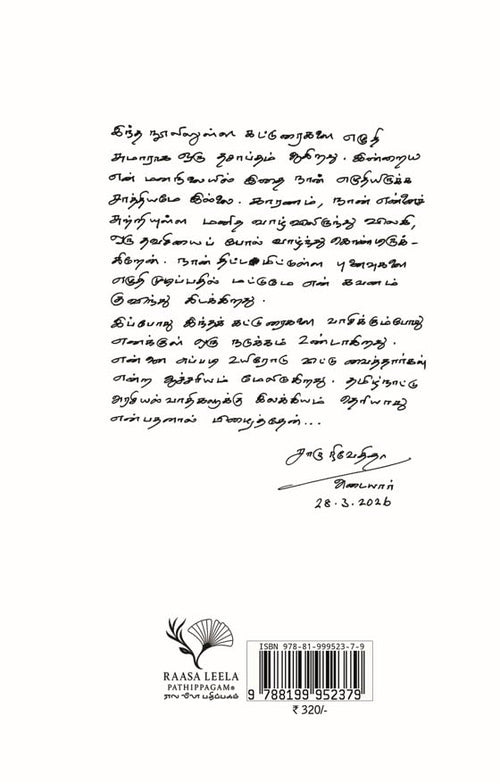 இந்த நூலிலுள்ள கட்டுரைகளை எழுதி
சுமாராக ஒரு தசாப்தம் ஆகிறது. இன்றைய
என் மனநிலையில் இதை நான் எழுதியிருக்க
சாத்தியமே இல்லை. காரணம், நான் என்னைச்
சுற்றியுள்ள மனித வாழ்விலிருந்து விலகி,
ஒரு தவசியைப் போல் வாழ்ந்து கொண்டிருக்-
கிறேன். நான் திட்டமிட்டுள்ள புனைவுகளை
எழுதி முடிப்பதில் மட்டுமே என் கவனம்
குவிந்து கிடக்கிறது.
இப்போது இந்தக் கட்டுரைகளை வாசிக்கும்போது
எனக்குள் ஒரு நடுக்கம் உண்டாகிறது.
என்னை எப்படி உயிரோடு விட்டு வைத்தார்கள்
என்ற ஆச்சரியம் மேலிடுகிறது. தமிழ்நாட்டு
அரசியல்வாதிகளுக்கு இலக்கியம் தெரியாது
என்பதனால் பிழைத்தேன்...
சாரு நிவேதிதா
அடையார்
28.3.2026
RAASA LEELA
PATHIPPAGAM®
ராஸ லீலா பதிப்பகம்
ISBN 978-81-999523-7-9
9 788199 952379
₹ 320/-